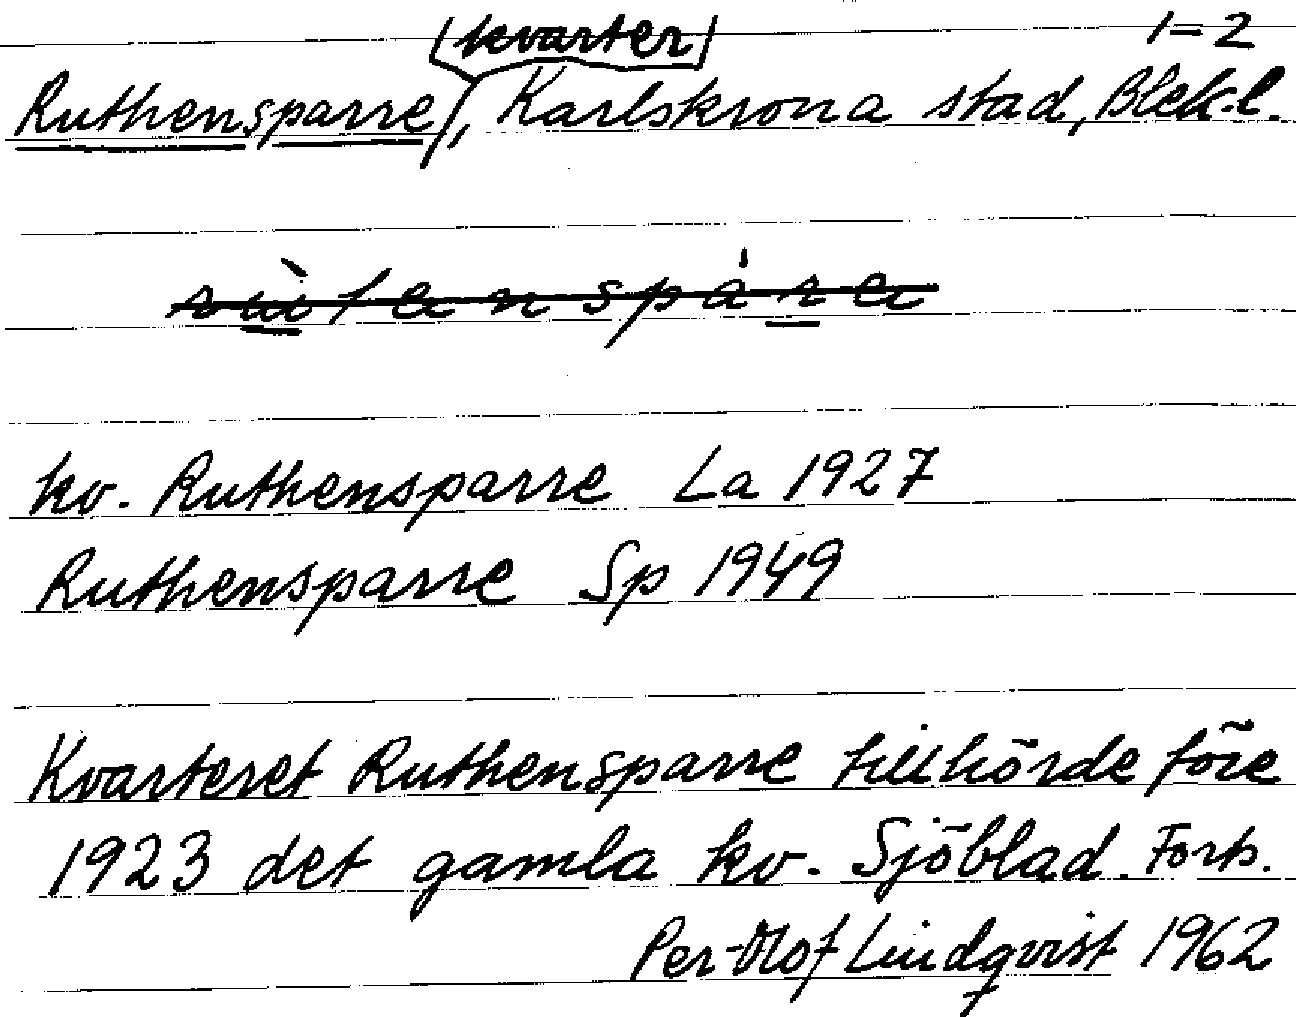 (kvarter) 1=2
Ruthensparre, Karlskrona stad, Blek.l.
kv. Ruthensparre La 1927
Ruthensparre Sp 1949
Kvarteret Ruthensparre tillhörde före
1923 det gamla kv. Sjöblad. Forts.
Per-Olof Lindqvist 1962